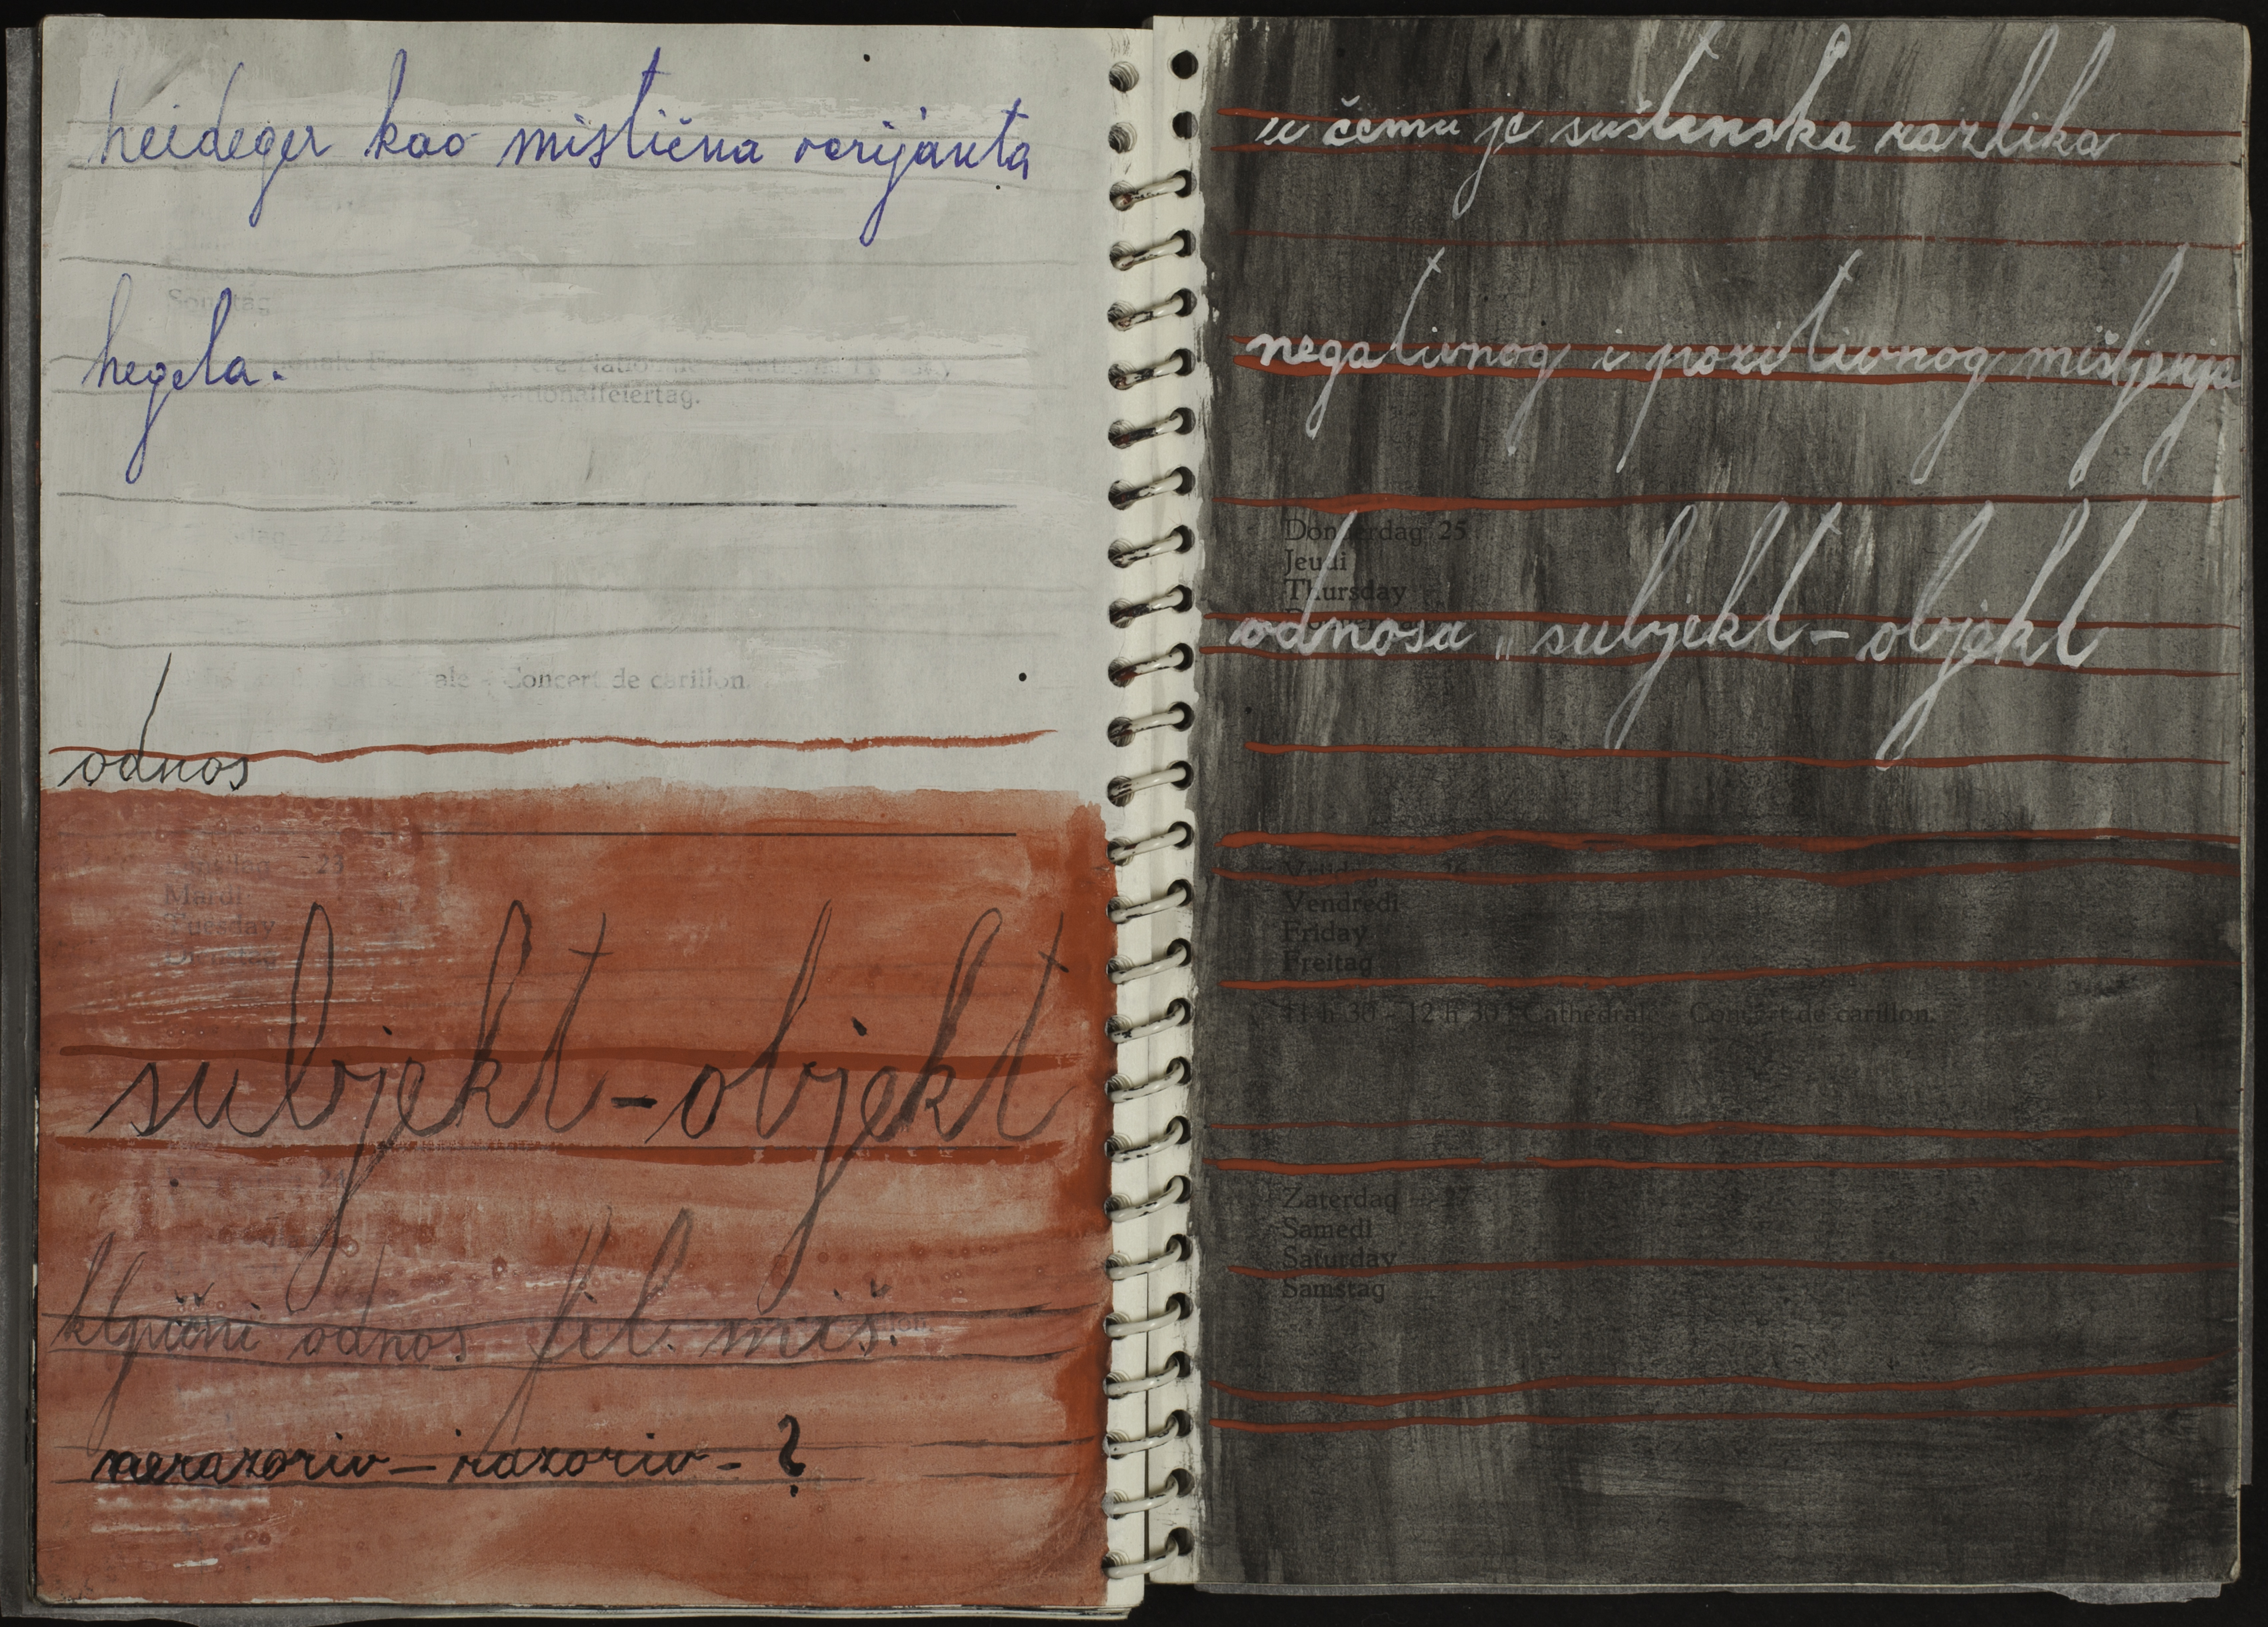 heideger kao mistična varijanta
Sonntag
hegela.
Nationalfeiertag.
Concert de carillon.
odnos
23
Mardi
Tuesday
Dienstag
subjekt-objekt
ključni odnos fil. miš.
nerazoriv - razoriv - ?
u čemu je suštinska razlika
negativnog i pozitivnog mišljenja
Donderdag 25
Jeudi
Thursday
odnosa „ subjekt - objekt
Vrijdag 26
Vendredi
Friday
Freitag
11 h 30 - 12 h 30 : Cathédrale - Concert de carillon.
Zaterdag - 27
Samedi
Saturday
Samstag